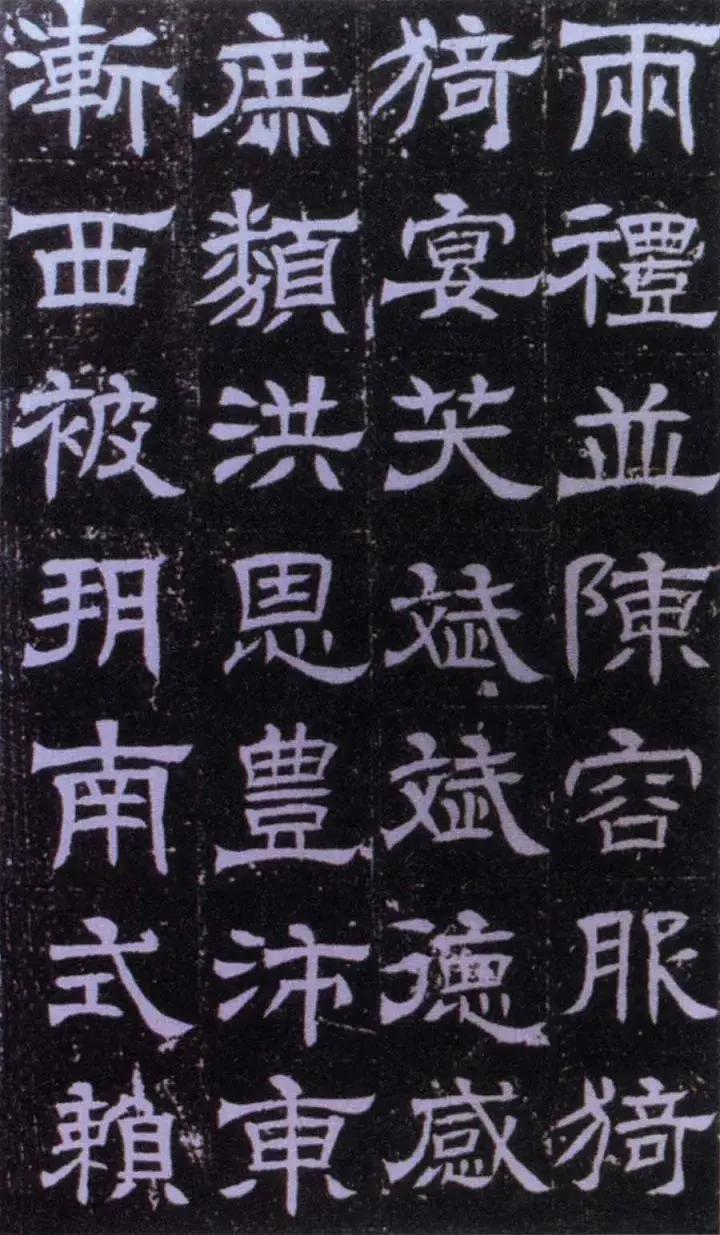 兩禮並陳容服猗
猗宴笑斌斌德感
庶類洪恩豐沛東
漸西被朔南式賴